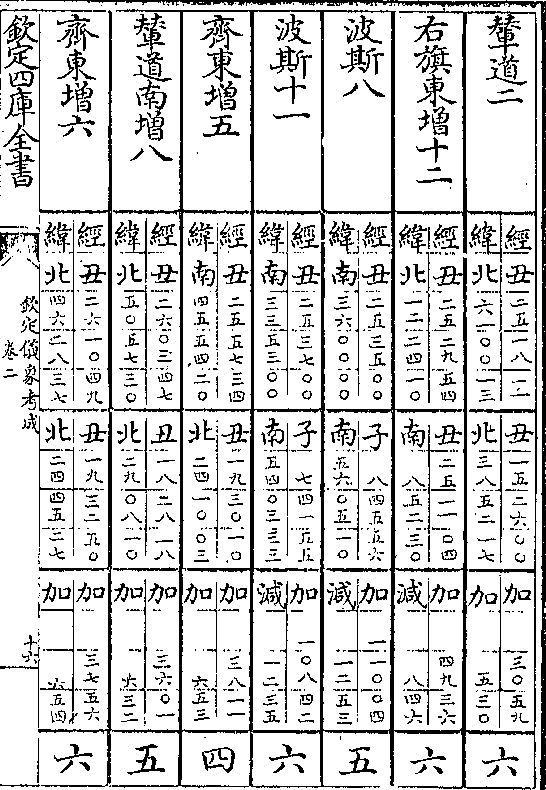 輦道二
經丑二五一八一二 丑一五二六〇〇 加三〇五九
緯北六一〇〇一三 北三八五二一七 加五三〇
六
右旗東增十二
經丑二五二九五四 丑二五一一〇四 加四九三六
緯北一二二四一〇 南八五二三〇 減八四六
六
波斯八
經丑二五三五〇〇 子八四五五六 加一一〇〇四
緯南三六〇〇〇〇 南五六〇五一〇 減一二五三
五
波斯十一
經丑二五三七〇〇 子七四一五五 加一〇八四二
緯南三三五三〇〇 南五四〇三三三 減一二三五
六
齊東增五
經丑二五五七三四 丑一九三〇一〇 加三八一一
緯南四五五四二〇 北二四一〇〇三 加六五三
四
輦道南增八
經丑二六〇三四七 丑一八二八一八 加三六〇一
緯北五〇五七三〇 北二九〇八一〇 加六三二
五
齊東增六
經丑二六一〇四九 丑一九三二五〇 加三七五六
緯北四六二八三七 北二四四五二七 加六五四
六
欽定四庫全書
欽定儀象考成
卷二
十六